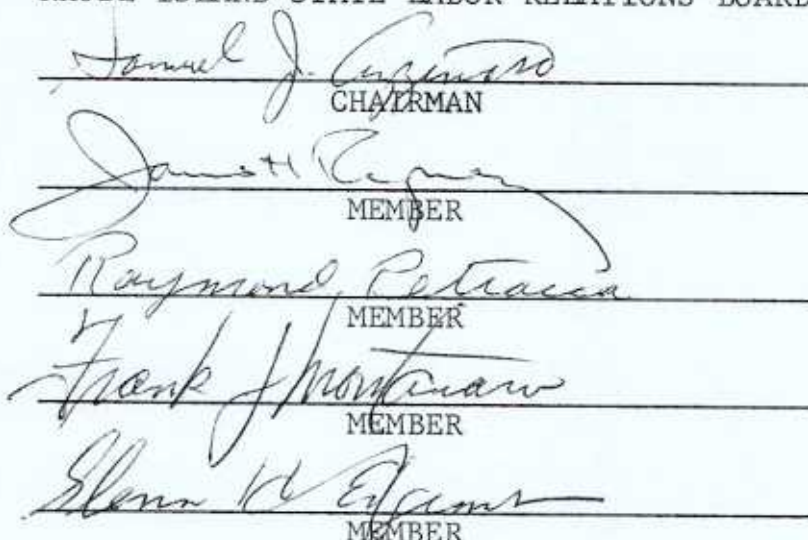 RHODE ISLAND STATE LABOR RELATIONS BOARD
Samuel J.
CHAIRMAN
James H
MEMBER
Raymond Petracca
MEMBER
Frank J Montanaro
MEMBER
Glenn H Edgecomb
MEMBER